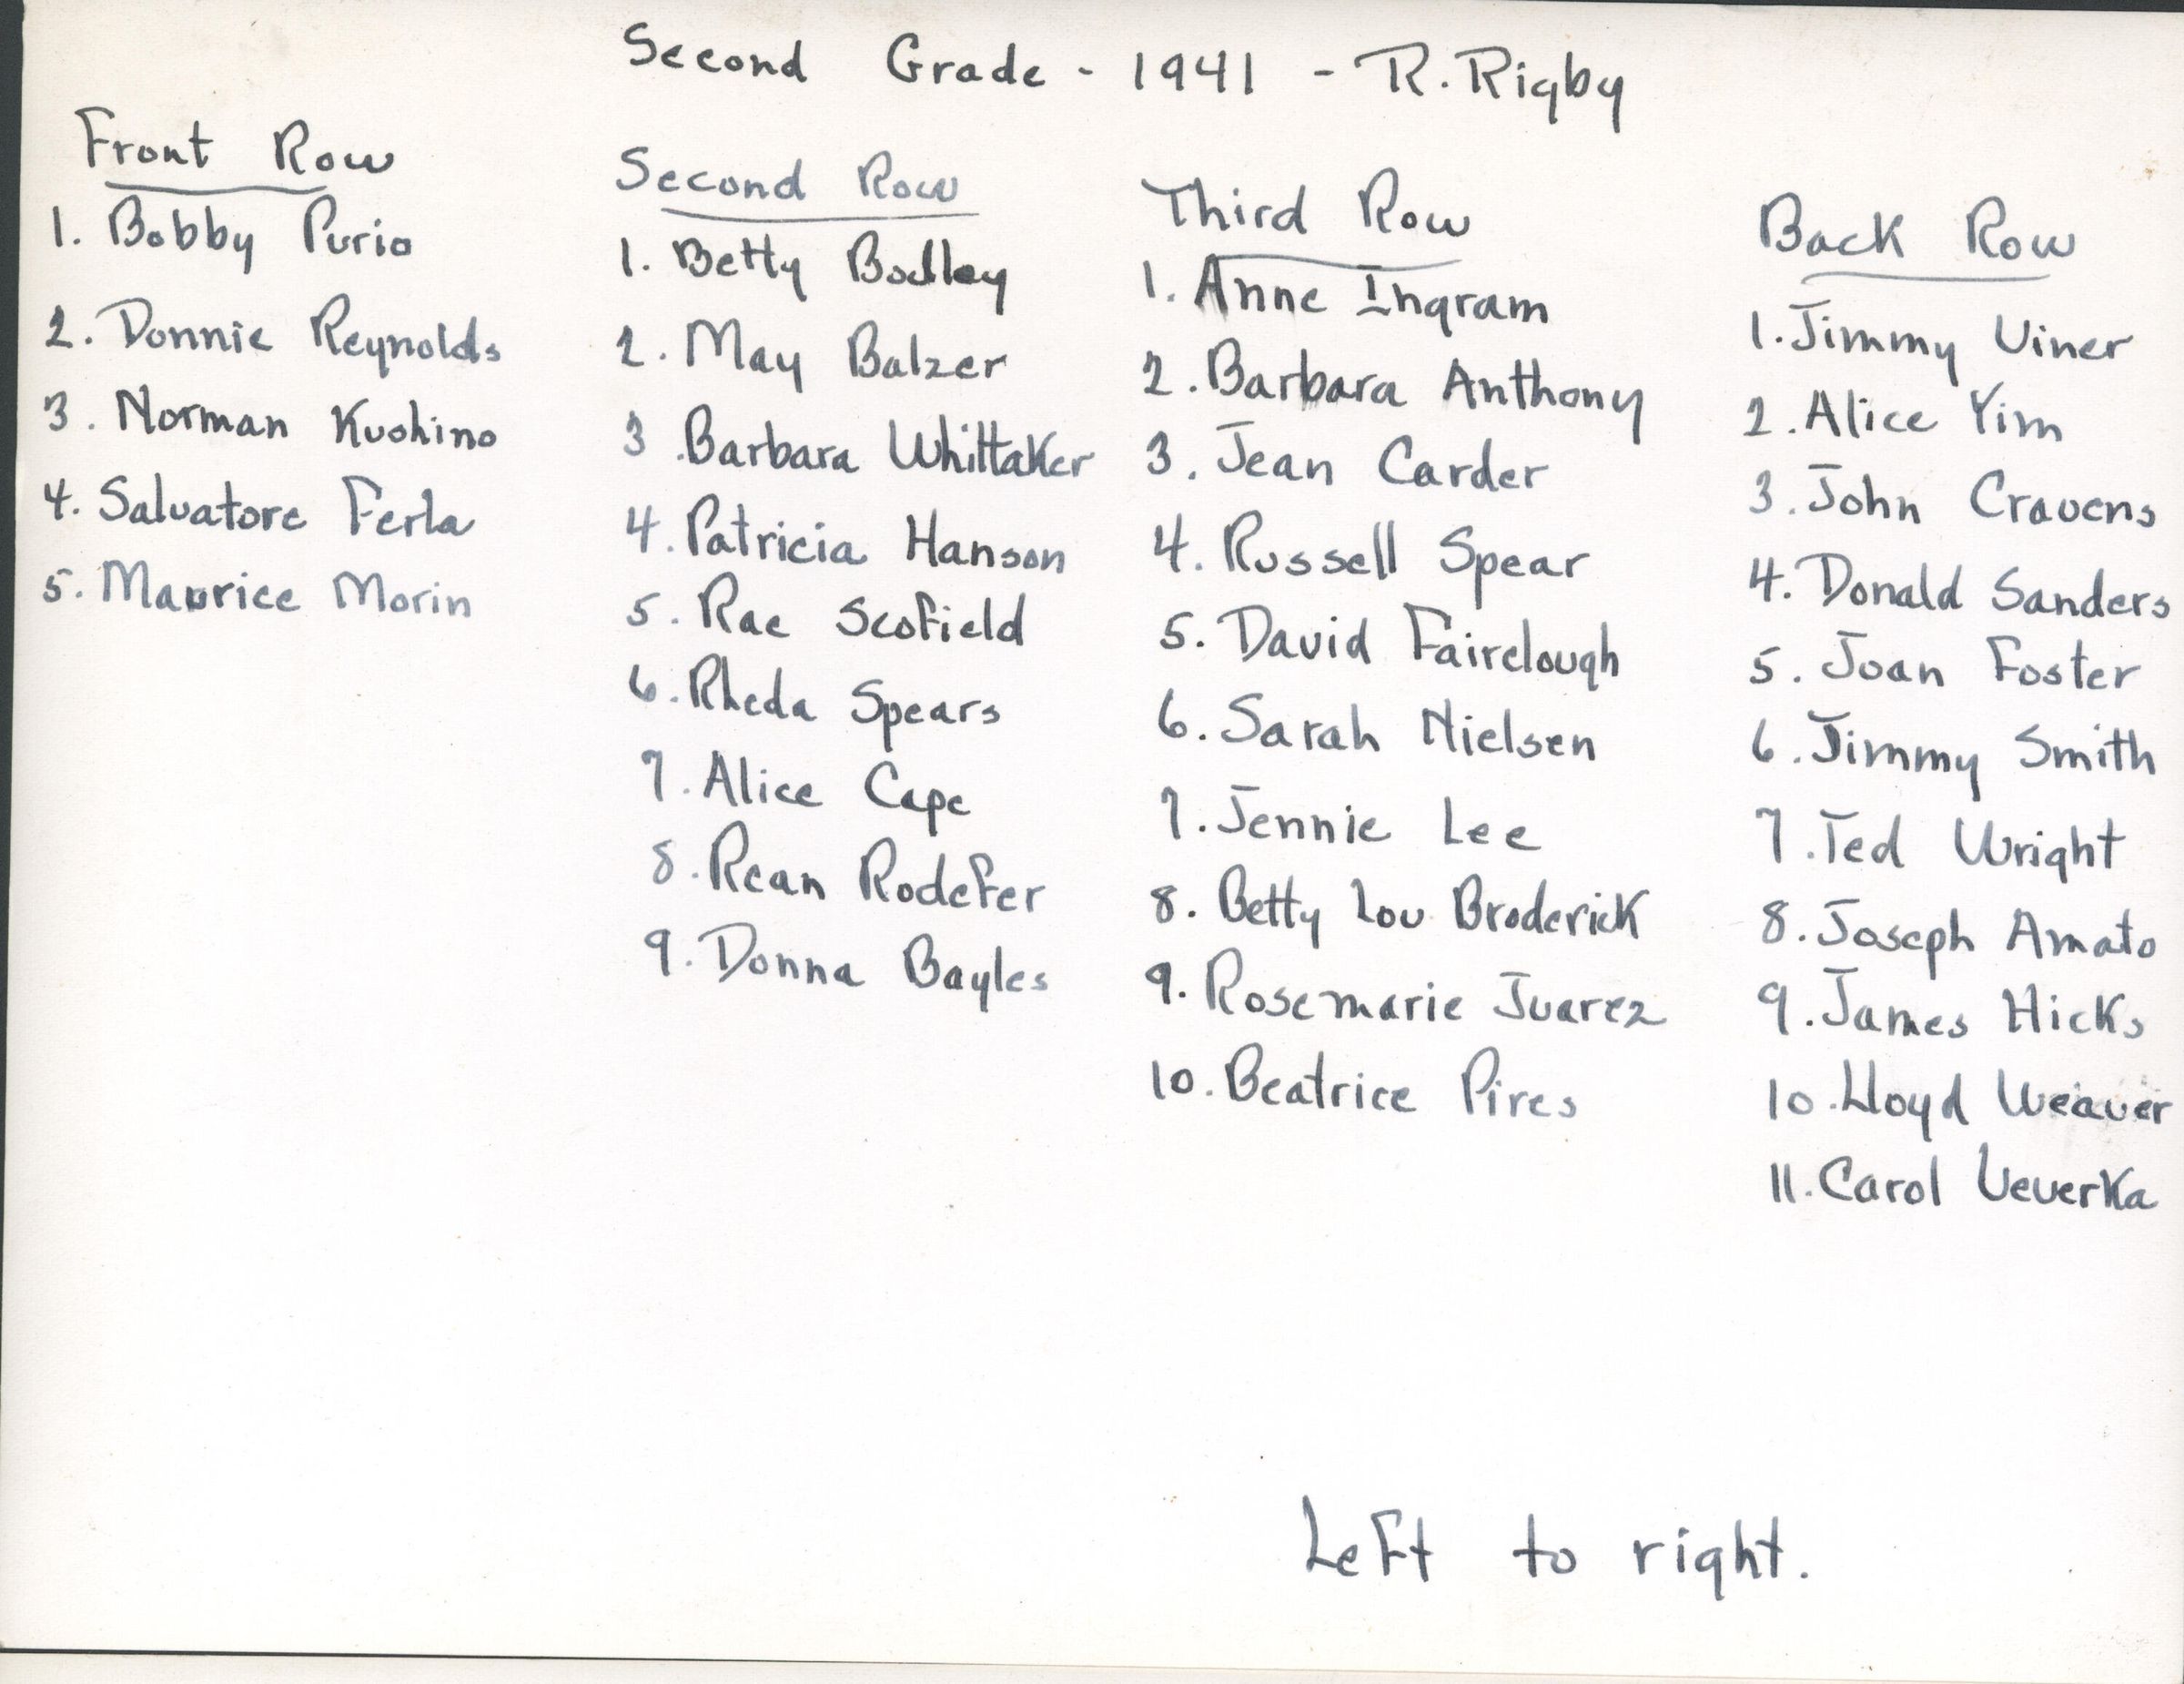 Second Grade - 1941 - R. Rigby
Front Row
1. Bobby Purio
2. Donnie Reynolds
3. Norman Kushino
4. Salvatore Ferla
5. Maurice Morin
Second Row
1. Betty Bodley
2. May Balzer
3. Barbara Whittaker
4. Patricia Hanson
5. Rae Scofield
6. Rheda Spears
7. Alice Cape
8. Rean Rodefer
9. Donna Bayles
Third Row
1. Anne Ingram
2. Barbara Anthony
3. Jean Carder
4. Russell Spear
5. David Fairclough
6. Sarah Nielsen
7. Jennie Lee
8. Betty Lou Broderick
9. Rosemarie Juarez
10. Beatrice Pires
Back Row
1. Jimmy Viner
2. Alice Yim
3. John Cravens
4. Donald Sanders
5. Joan Foster
6. Jimmy Smith
7. Ted Wright
8. Joseph Amato
9. James Hicks
10. Lloyd Weaver
11. Carol Veverka
Left to right.